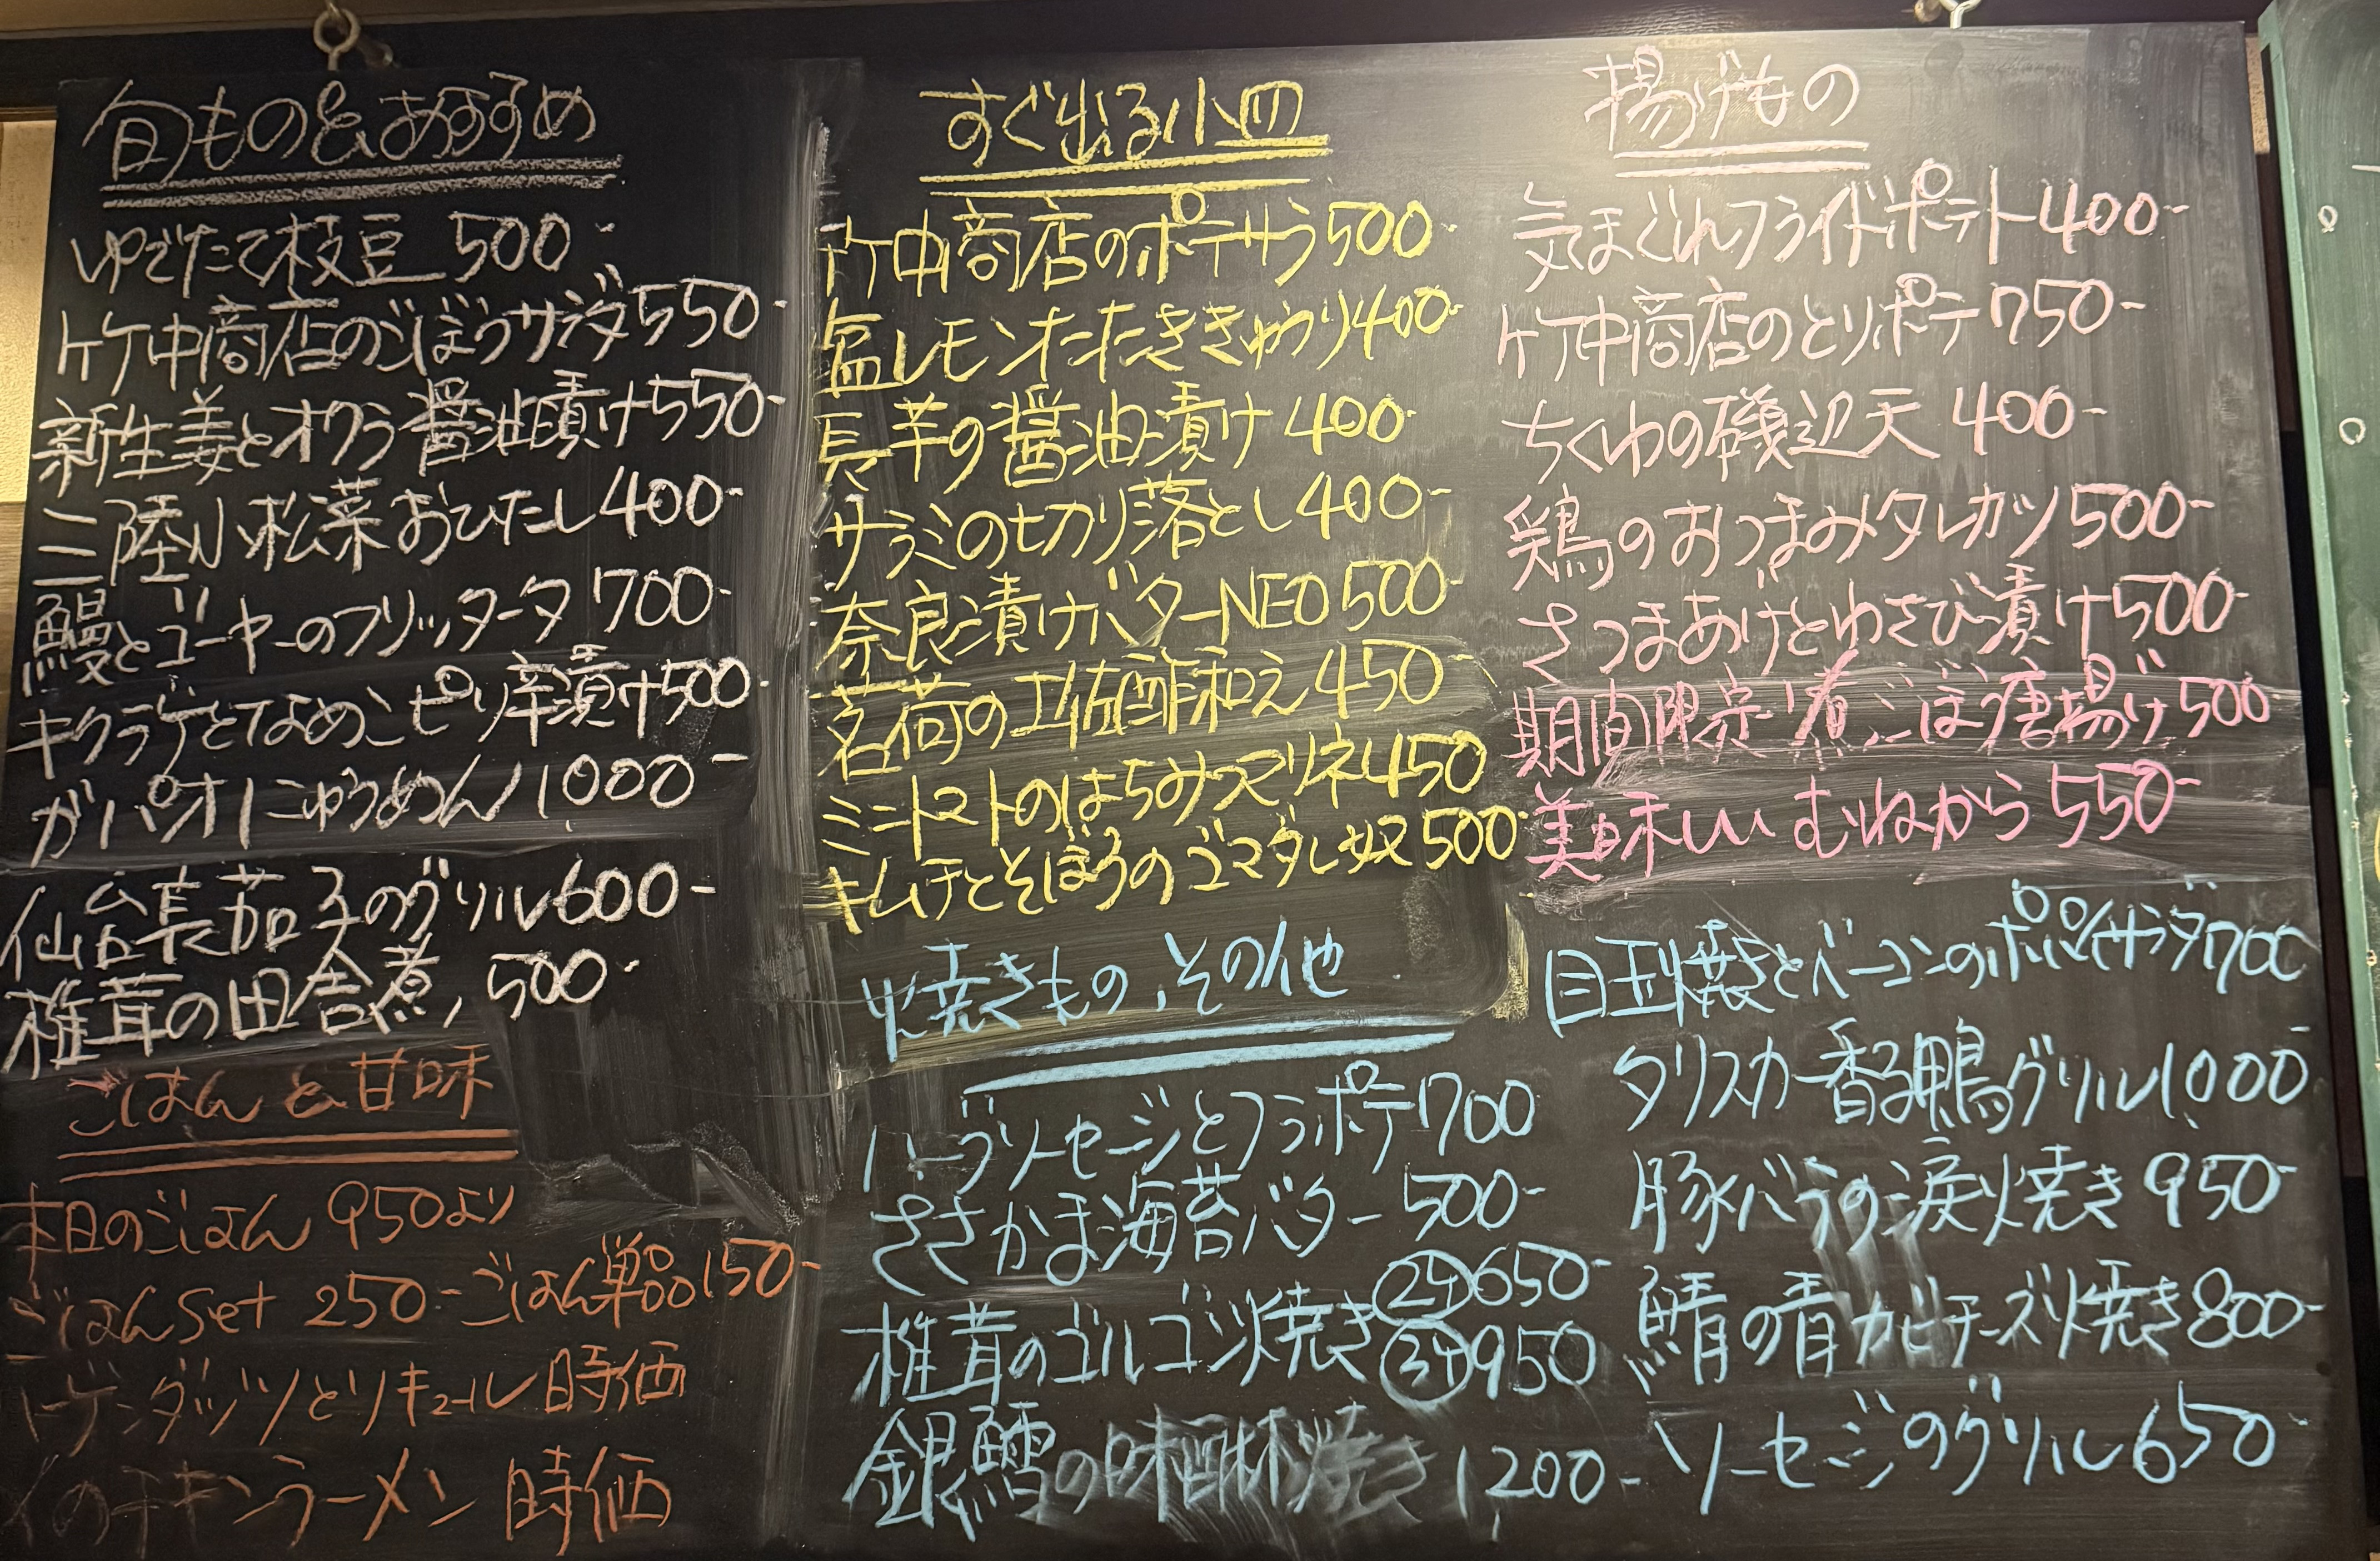 旬もの&おすすめ
ゆでたて枝豆 500-
竹中商店のごぼうサラダ550-
新生姜とオクラ醤油漬け550-
三陸小松菜おひたし400-
鰻とゴーヤーのフリッタータ 700-
キクラゲとなめこピリ辛漬け500-
ガパオにゅうめん 1000-
仙台長茄子のグリル600-
椎茸の田舎煮 500-
ごはんと甘味
本日のごはん 950より
ごはんset 250-ごはん単品150-
ハーゲンダッツとリキュール 時価
〆のチキンラーメン 時価
すぐ出る小皿
竹中商店のポテサラ500-
塩レモンたたききゅうり400-
長芋の醤油漬け 400-
サラミの切り落とし400-
奈良漬けバターNEO 500-
茗荷の土佐酢和え 450-
ミニトマトのはちみつマリネ450
キムチとそぼろのゴマダレ奴 500-
焼きもの、その他
ハーブソーセージとフラポテ700
ささかま海苔バター 500-
椎茸のゴルゴンゾ焼き ②ヶ650-
③ヶ950
銀鱈の味醂焼き 1200-
揚げもの
気まぐれフライドポテト400-
竹中商店のとりポテ750-
ちくわの磯辺天 400-
鶏のおつまみタレカツ500-
さつまあげとわさび漬け500-
期間限定 煮ごぼう唐揚げ500-
美味しい むねから 550-
目玉焼きとベーコンのポパイサラダ700
タリスカー香る鴨グリル1000-
豚バラの涙焼き 950-
鯖の青カビチーズ焼き800-
ソーセージのグリル650-